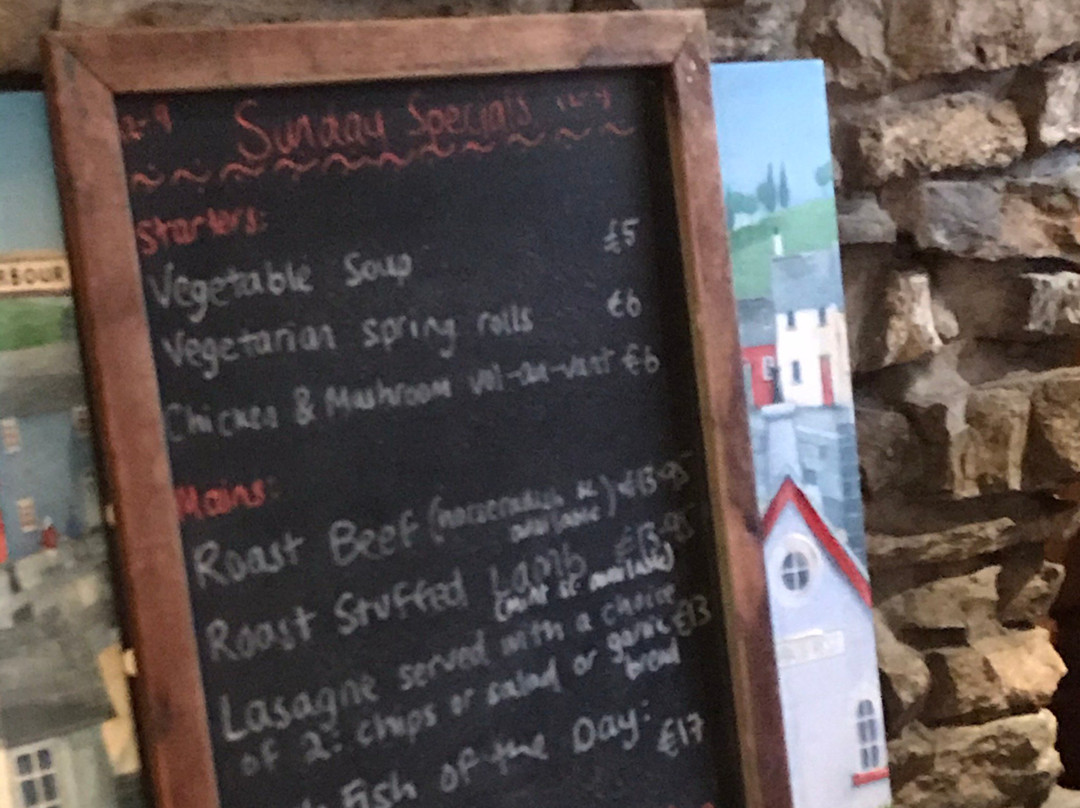 Sunday Specials 12-9
RBOUR
Starters:
Vegetable Soup £5
Vegetarian spring rolls £6
Chicken & Mushroom vol-au-vent £6
Mains:
Roast Beef (horseradish sc £13.95
available)
Roast Stuffed Lamb £13.95
(mint sc available)
Lasagne served with a choice
of 2: chips or salad or garlic £13
bread
Fish of the Day: £17